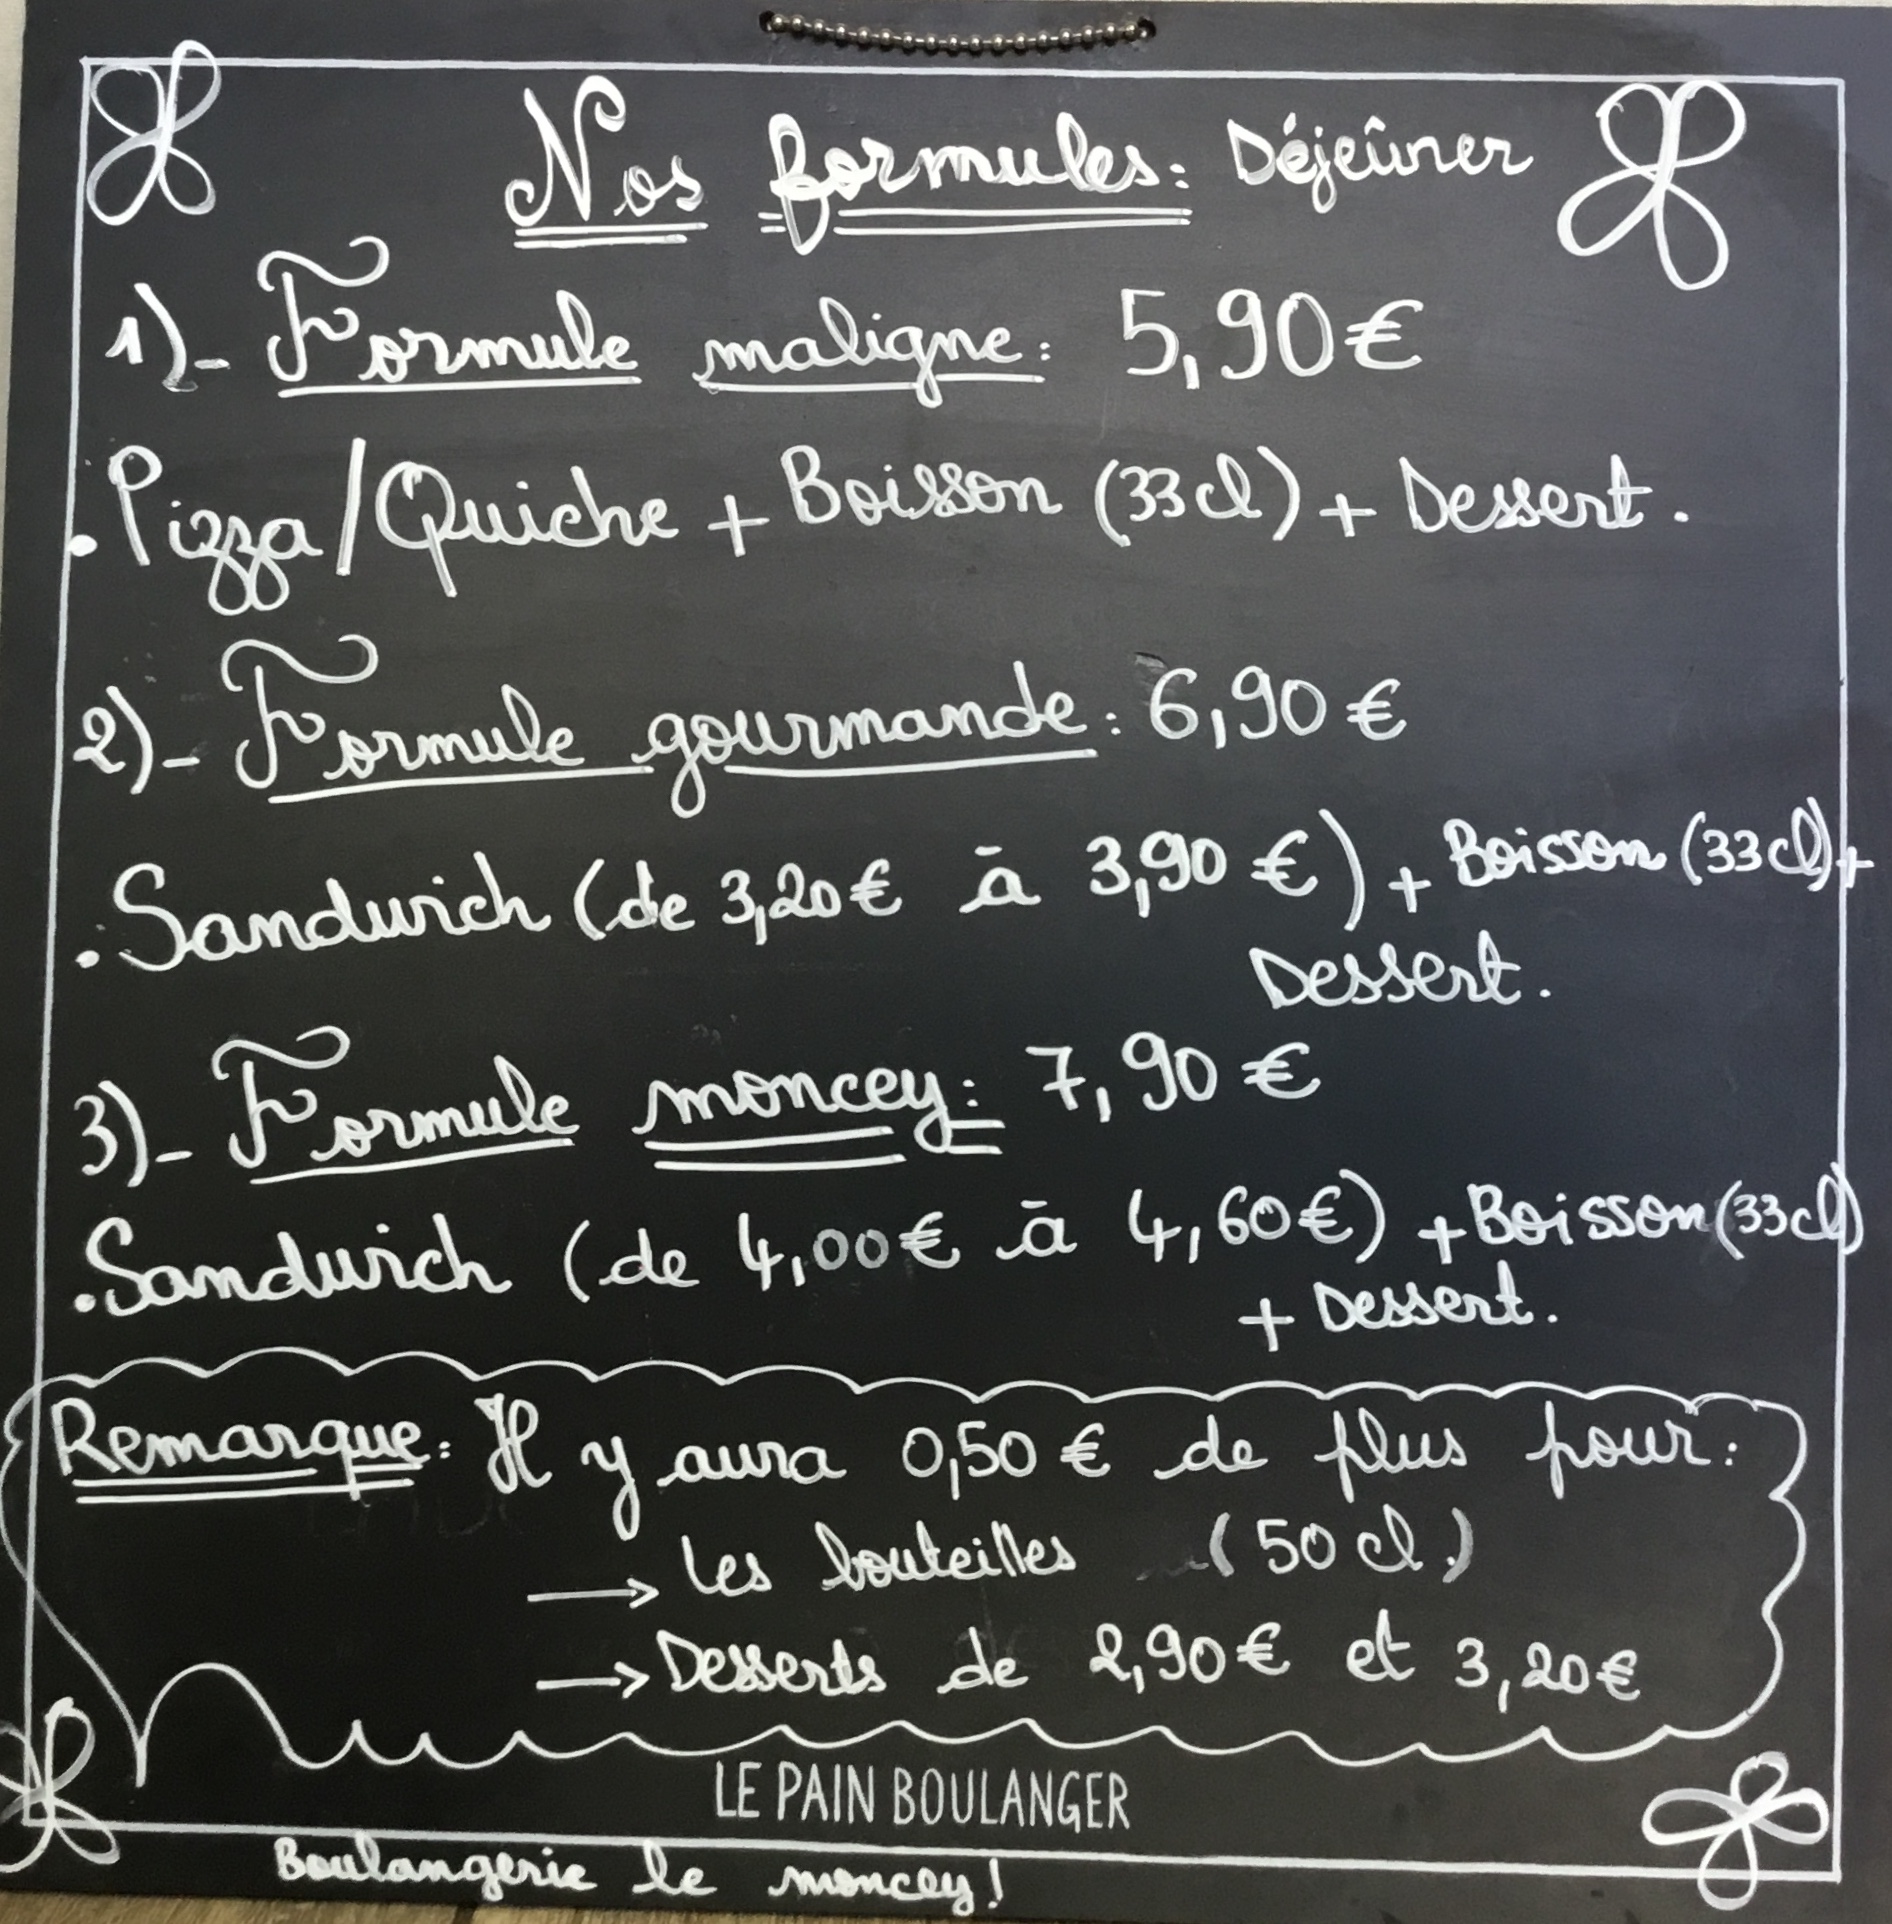 Nos formules: Déjeûner
1)- Formule maligne: 5,90€
. Pizza/Quiche + Boisson (33cl) + Dessert.
2)- Formule gourmande: 6,90 €
. Sandwich (de 3,20€ à 3,90 €) + Boisson (33cl) +
Dessert.
3)- Formule moncey: 7,90 €
. Sandwich (de 4,00€ à 4,60€) + Boisson (33cl)
+ Dessert.
Remarque: Il y aura 0,50 € de plus pour:
→ Les bouteilles (50 cl.)
→ Desserts de 2,90€ et 3,20€
LE PAIN BOULANGER
Boulangerie le moncey!